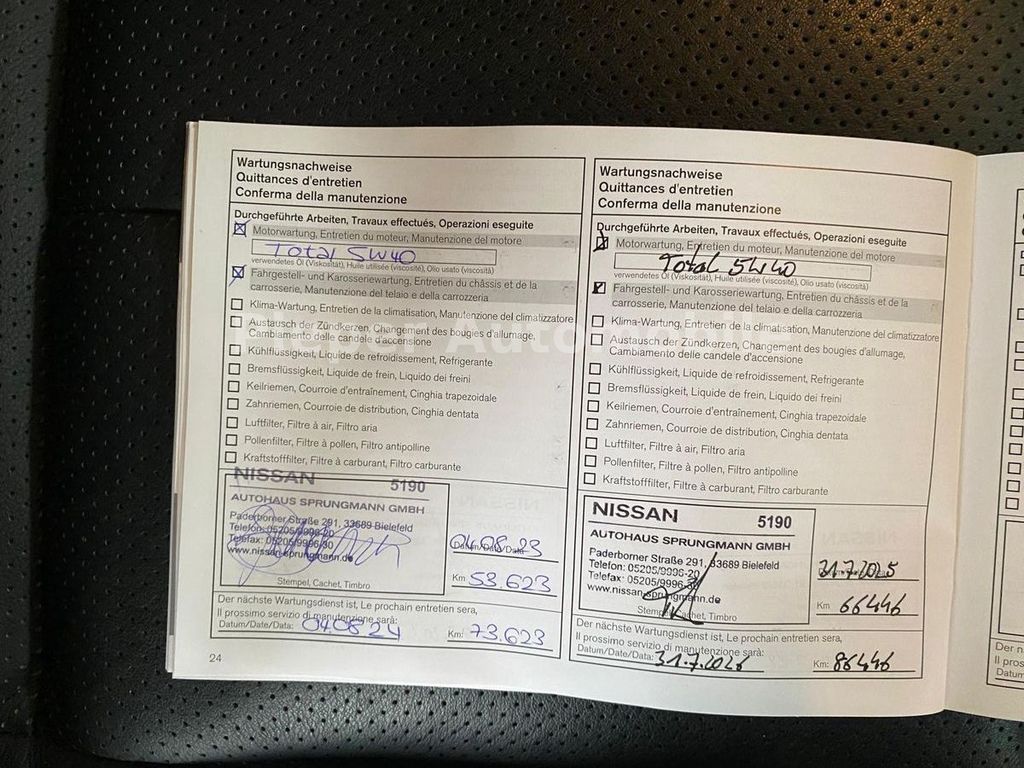 Wartungsnachweise
Quittances d'entretien
Conferma della manutenzione
Durchgeführte Arbeiten, Travaux effectués, Operazioni eseguite
Motorwartung, Entretien du moteur, Manutenzione del motore
Total 5W40
verwendetes Öl (Viskosität), Huile utilisée (viscosité), Olio usato (viscosità)
Fahrgestell- und Karosseriewartung, Entretien du châssis et de la
carrosserie, Manutenzione del telaio e della carrozzeria
Klima-Wartung, Entretien de la climatisation, Manutenzione del climatizzatore
Austausch der Zündkerzen, Changement des bougies d'allumage,
Cambiamento delle candele d'accensione
Kühlflüssigkeit, Liquide de refroidissement, Refrigerante
Bremsflüssigkeit, Liquide de frein, Liquido dei freini
Keilriemen, Courroie d'entraînement, Cinghia trapezoidale
Zahnriemen, Courroie de distribution, Cinghia dentata
Luftfilter, Filtre à air, Filtro aria
Pollenfilter, Filtre à pollen, Filtro antipolline
Kraftstofffilter, Filtre à carburant, Filtro carburante
NISSAN 5190
AUTOHAUS SPRUNGMANN GMBH
Paderborner Straße 291, 33689 Bielefeld
Telefon: 05205/9996-20
Telefax: 05205/9996-30
www.nissan-sprungmann.de
Stempel, Cachet, Timbro
04.08.23
Datum/Date/Data
Km 53.623
Der nächste Wartungsdienst ist, Le prochain entretien sera,
Il prossimo servizio di manutenzione sarà:
Datum/Date/Data: 04.08.24 Km: 73.623
24
Wartungsnachweise
Quittances d'entretien
Conferma della manutenzione
Durchgeführte Arbeiten, Travaux effectués, Operazioni eseguite
Motorwartung, Entretien du moteur, Manutenzione del motore
Total 5W40
verwendetes Öl (Viskosität), Huile utilisée (viscosité), Olio usato (viscosità)
Fahrgestell- und Karosseriewartung, Entretien du châssis et de la
carrosserie, Manutenzione del telaio e della carrozzeria
Klima-Wartung, Entretien de la climatisation, Manutenzione del climatizzatore
Austausch der Zündkerzen, Changement des bougies d'allumage,
Cambiamento delle candele d'accensione
Kühlflüssigkeit, Liquide de refroidissement, Refrigerante
Bremsflüssigkeit, Liquide de frein, Liquido dei freini
Keilriemen, Courroie d'entraînement, Cinghia trapezoidale
Zahnriemen, Courroie de distribution, Cinghia dentata
Luftfilter, Filtre à air, Filtro aria
Pollenfilter, Filtre à pollen, Filtro antipolline
Kraftstofffilter, Filtre à carburant, Filtro carburante
NISSAN 5190
AUTOHAUS SPRUNGMANN GMBH
Paderborner Straße 291, 33689 Bielefeld
Telefon: 05205/9996-20
Telefax: 05205/9996-30
www.nissan-sprungmann.de
Stempel, Cachet, Timbro
31.7.2025
Km 66446
Der nächste Wartungsdienst ist, Le prochain entretien sera,
Il prossimo servizio di manutenzione sarà:
Datum/Date/Data: 31.7.2026 Km: 86446
Der n
Il pross
Datum/